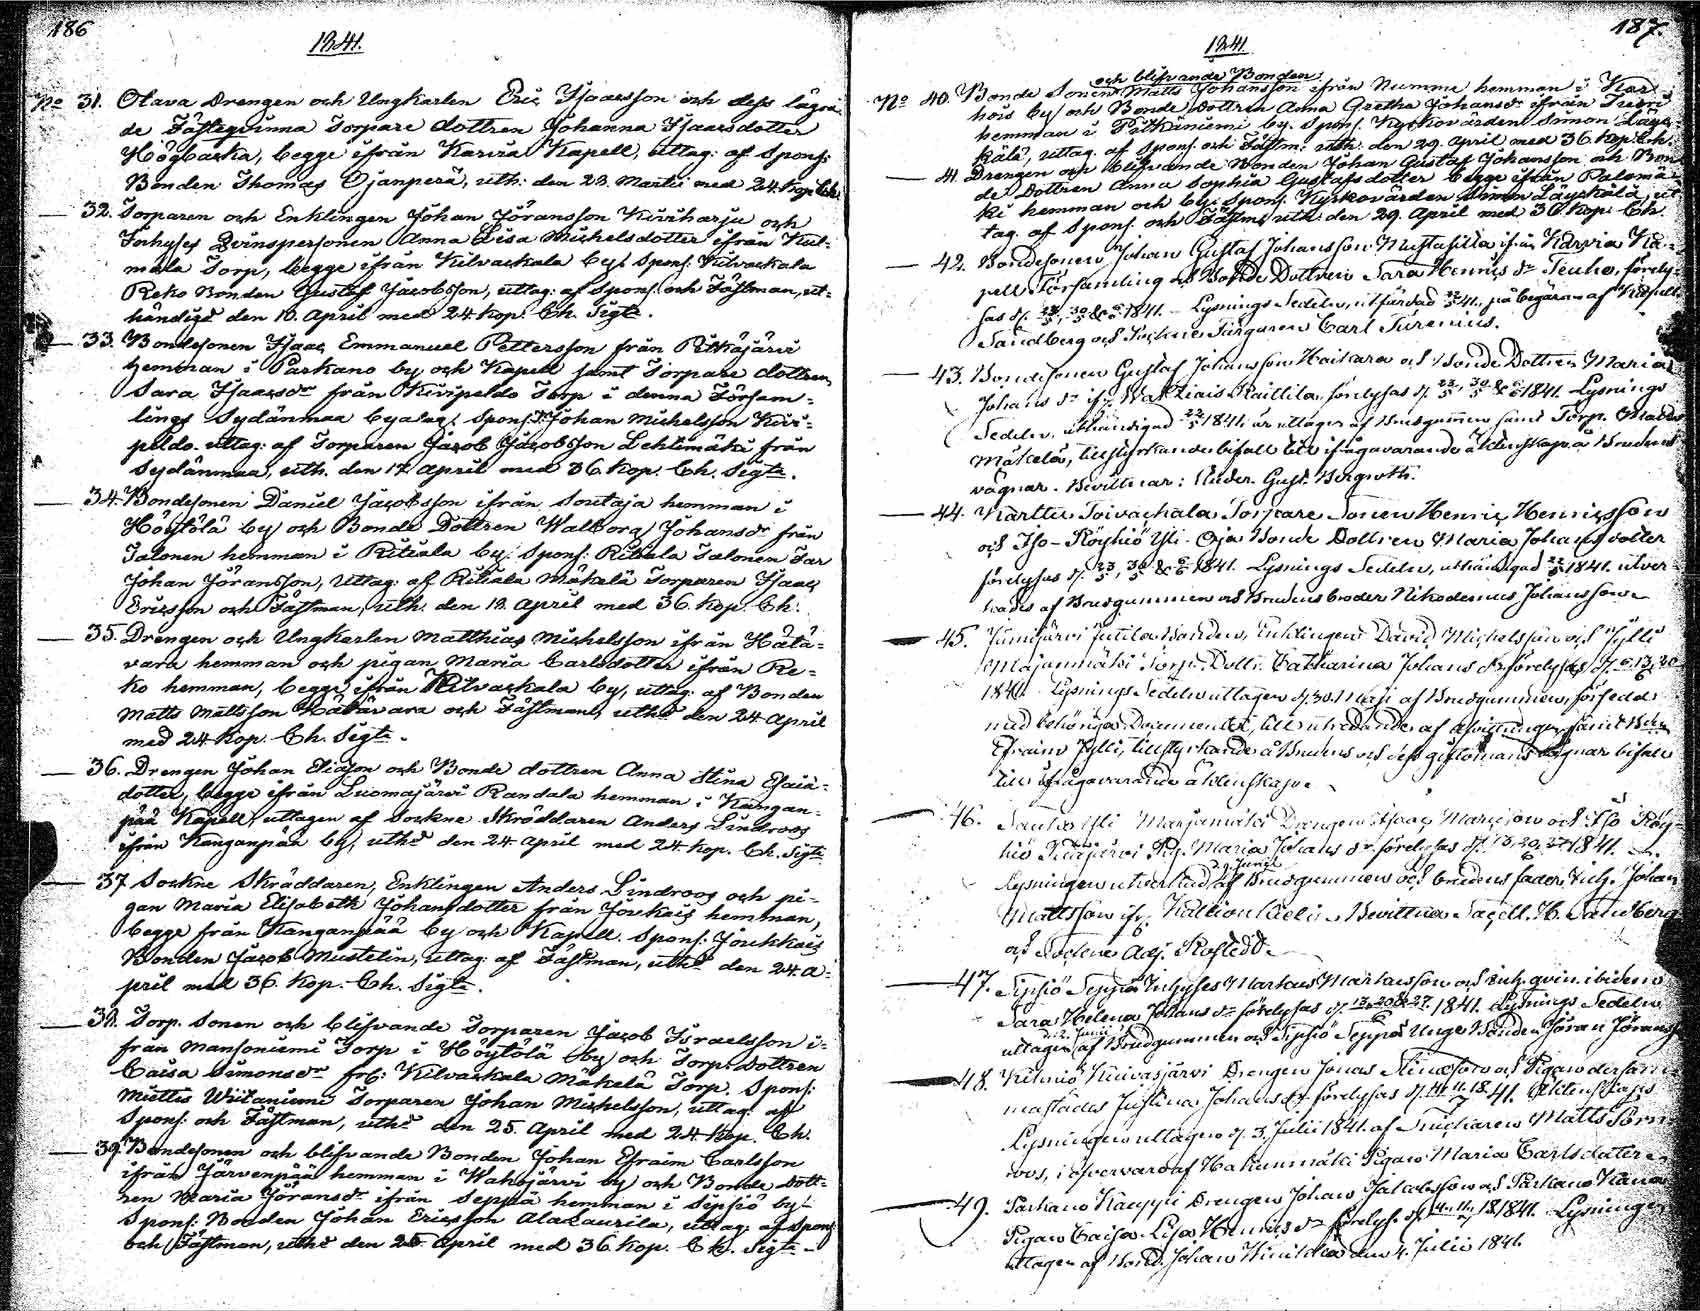 186
1841.
No 31. Otava Drengen och Ungkarlen Eric Isaacsson och dess lägra-
de Fästeqvinna Torpare dottren Johanna Isaacsdotter
Högbacka, begge ifrån Karvia Kapell, uttag: af Spons:
Bonden Thomas Ojanperä, uth: den 28. Martii med 24. kop. Ch.
32. Torparen och Enklingen Johan Jöransson Kiviharju och
Inhyses Qvinspersonen Anna Lisa Michelsdotter ifrån
Torp, begge ifrån Kilvackala by. Spons: Kilvackala
Reko Bonden Gustaf Jacobsson, uttag: af Spons: och Fästman, ut-
händigd den 10. April med 24. kop. Ch. Sigte.
33. Bondesonen Isaac Emmanuel Pettersson från Pitkäjärvi
hemman i Parkano by och Kapell samt Torpare dottren
Sara Isaacsdr från Kivipeldo Torp i denna Försam-
lings Sydänmaa byalag. Spons: Johan Michelsson Kivi-
peldo. uttag: af Torparen Jacob Jacobsson Lehtimäki från
Sydänmaa, uth. den 17 April med 36. kop. Ch. Sigte.
34. Bondesonen Daniel Jacobsson ifrån Soutaja hemman i
Höytölä by och Bonde Dottren Walborg Johansdr från
Salonen hemman i Ritiala by. Spons: Ritiala Salonen Far
Johan Jöransson, uttag: af Ritiala Mäkelä Torparen Isaac
Ericsson och Fästman, uth. den 18. April med 36. kop. Ch.
35. Drengen och Ungkarlen Matthias Michelsson ifrån Hätä-
vara hemman och pigan Maria Carlsdotter ifrån Re-
ko hemman, begge ifrån Kilvackala by, uttag: af Bonden
Matts Mattsson Hätävara och Fästman, uthd den 24. April
med 24. kop. Ch. Sigte.
36. Drengen Johan Eliasson och Bonde dottren Anna Stina Esaiæ-
dotter, begge ifrån Luomajärvi Randala hemman i Kangan-
pää Kapell, uttagen af Sockne Skräddaren Anders Lindroos
ifrån Kanganpää by, uthd den 24. April med 24. kop. Ch. Sigte
37. Sockne Skräddaren, Enklingen Anders Lindroos och pi-
gan Maria Elisabeth Johansdotter från Joukais hemman,
begge från Kanganpää by och Kapell. Spons: Joukkais
Bonden Jacob Mustelin, uttag: af Fästman, uthd den 24. A-
pril med 36. kop. Ch. Sigte.
38. Torp. Sonen och blifvande Torparen Jacob Israelsson i-
från Mansoniemi Torp i Höytölä by och Torp. Dottren
Caisa Simonsdr fr: Kilvackala Mäkelä Torp. Spons:
Miettis Wiitaniemi Torparen Johan Michelsson, uttag: af
Spons: och Fästman, uthd den 25. April med 24. kop. Ch.
39. Bondesonen och blifvande Bonden Johan Efraim Carlsson
ifrån Järvenpää hemman i Wahojärvi by och Bonde Dott-
ren Maria Jöransdr ifrån Seppä hemman i Sipsiö by.
Spons: Bonden Johan Ericsson Alataurila, uttag: af Spons
och Fästman, uthd den 26. April med 36. kop. Ch. Sigte.
187.
1841
och blifvande Bonden
No 40. Bonde Sonen Matts Johansson ifrån Numme hemman i Kar-
hois by och Bonde Dottren Anna Gretha Johansdr ifrån
hemman i Pitkäniemi by. Spons: Kyrkovärden Simon Läys-
kälä, uttag. af Spons. och Fästm. uth: den 29. April med 36. kop. Ch.
41. Drengen och blifvande Bonden Johan Gustaf Johansson och Bon-
de Dottren Anna Sophia Gustafsdotter begge ifrån Palomä-
ki hemman och by. Spons: Kyrkovärden Simon Läyskälä, ut-
tag. af Spons. och Fästm: uth: den 29. April med 36. kop. Ch.
42. Bondesonen Johan Gustaf Johansson Mustasilta ifrån Karvia Ka-
pell Församling och Bonde Dottren Sara Henricsdr Teuho, förely-
sas d. 23/5, 30/5 & 6/6 1841. Lysnings Sedeln, utfärdad 22/5 41, på begäran af
Sandberg och Sockne Färgaren Carl Turenius.
43. Bondesonen Gustaf Johansson Haikara och Bonde Dottren Maria
Johansdr ifr. Raittila, förelysas d. 23/5, 30/5 & 6/6 1841. Lysnings
Sedeln, utfärdad 22/5 1841. är uttagen af Brudgummen samt Torp. Matts
Mäkelä, tillstyrkande bifall till ifrågavarande äktenskap å Brudens
vägnar. Bevittnar: Gust. Bergroth.
44. Kärttu Toivackala Torpare Sonen Henric Henricsson
och Iso-Röyhiö Yli-Oja Bonde Dottren Maria Johansdotter
förelysas d. 23/5, 30/5 & 6/6 1841. Lysnings Sedeln, utfärdad 22/5 1841. utver-
kades af Brudgummen och Brudens broder Nikodemus Johansson.
45. Jämijärvi Bonden, Enklingen David Michelsson och Jylli
Majanmäki Torp. Dottr. Catharina Johansdr förelysas d. 6, 13, 20/6
1841. Lysnings Sedeln uttagen d. 30. Maji af Brudgummen, försedd
med behöriga Documenter, till utredande af samt Bdn
Efraim Jylli, tillstyrkande å Brudens och dess giftomans vägnar bifall
till ifrågavarande äktenskap.
46. Yli Marjamäki Drengen Isaac Maricsson och Iso Röy-
hiö Pitkäjärvi Pig. Maria Johansdr förelysas d. 13, 20, 27/6 1841.
Lysningen utverkad af Brudgummen och brudens fader Inh. Johan
Mattsson ifr. Kallionkieli. Bevittna Sacell. H. Sandberg
och Sockne Adj. Rostedt.
47. Sipsiö Seppä Inhyses Markus Markusson och inh. qvin. ibidem
Sara Helena Johansdr förelysas d. 13, 20 & 27/6 1841. Lysnings Sedeln
uttagen af Brudgummen och Sipsiö Seppä Unge Bonden Jöran Jöranss.
48. Kihniö Kuivasjärvi Drengen Jonas Simonsson och Pigan dersam-
mastädes Justina Johansdr förelysas d. 4, 11, 18/7 41. Äktenskaps
Lysningen uttagen d. 3. Julii 1841. af Snickaren Matts Törn-
roos, i öfvervaro af Hakunmäki Pigan Maria Carlsdotter.
49. Parkano Käyppi Drengen Johan Jakobsson och Parkano
Pigan Caisa Lisa Henricsdr förelys. d. 4, 11, 18/7 1841. Lysningen
uttagen af Bond. Johan den 4. Julii 1841.